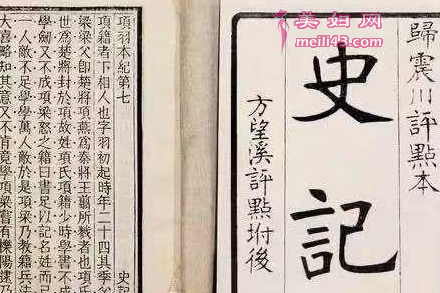 美妇网
meili43.com
歸震川評點本
史記
方望溪評點坿後
項羽本紀第七
項籍者下相人也字羽初起時年二十四其季父
梁梁父卽楚將項燕爲秦將王翦所戮者也項氏
世爲楚將封於項故姓項氏項籍少時學書不成
學劍又不成項梁怒之籍曰書足以記名姓而已
一人敵不足學學萬人敵於是項梁乃教籍兵法
大喜略知其意又不肯竟學項梁嘗有櫟陽逮乃
史記